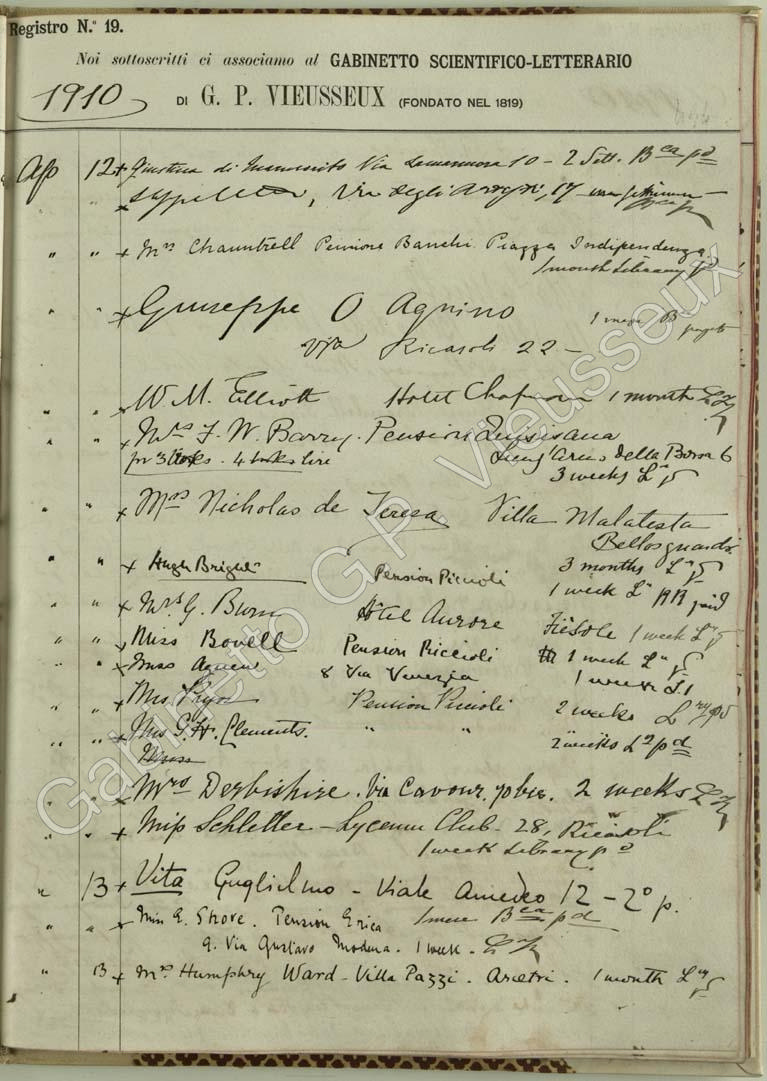 Registro N.º 19.
Noi sottoscritti ci associamo al GABINETTO SCIENTIFICO-LETTERARIO
1910
DI G. P. VIEUSSEUX (FONDATO NEL 1819)
Ap 12 + di Via Lamarmora 10 - 2 Sett. Bca pd
+ , Via degli 17
" " + Mrs Chauntrell Pensione Banchi Piazza Indipendenza
1 month Library pd
" " + Giuseppe O Agnino 1 mese B pagato
via Ricasoli 22 -
" " + W. M. Elliott Hotel Chapman 1 month
" " + Mrs F. W. Barry. Pension Quisisana
Lung'Arno della Borsa 6
3 weeks Ly
" " + Mrs Nicholas de Teresa Villa Malatesta
Bellosguardo
3 months Ly
" " + Hugh Bright Pension Piccioli
1 week Ly paid
" " + Mrs G. Burn Hotel Aurore Fiesole 1 week Ly
" " + Miss Bovell Pension Piccioli 1 week Ly
" " + Miss Agnew 8 Via Venezia 1 week
" " + Mrs Pryor Pension Piccioli 2 weeks Lry pd
" " + Mrs G. H. Clements. " " 2 weeks Ly pd
Miss
" " + Mrs Derbishire. Via Cavour. 70 bis. 2 weeks
" " + Miss Schletter - Lyceum Club - 28, Ricasoli
1 week Library pd
" 13 + Vita Guglielmo - Viale Amedeo 12 - 2º p.
1 mese Bca pd
" " + Miss E. Shove. Pension Erica
9. Via Gustavo Modena. 1 week.
" 13 + Mrs Humphry Ward - Villa Pazzi. Arcetri. 1 month Lry
Gabinetto G.P. Vieusseux